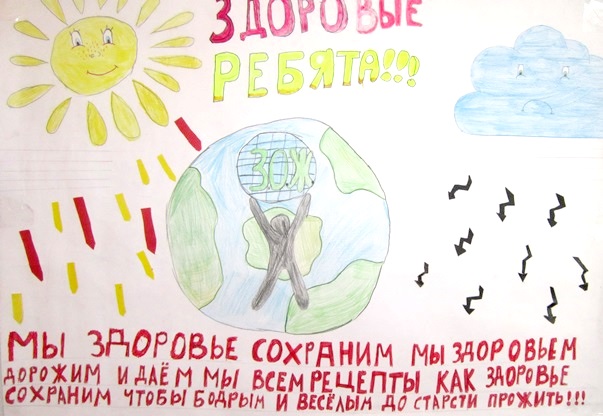 ЗДОРОВЫЕ
РЕБЯТА!!!
ЗОЖ
МЫ ЗДОРОВЬЕ СОХРАНИМ МЫ ЗДОРОВЬЕМ
ДОРОЖИМ И ДАЁМ МЫ ВСЕМ РЕЦЕПТЫ КАК ЗДОРОВЬЕ
СОХРАНИМ ЧТОБЫ БОДРЫМ И ВЕСЁЛЫМ ДО СТАРСТИ ПРОЖИТЬ!!!